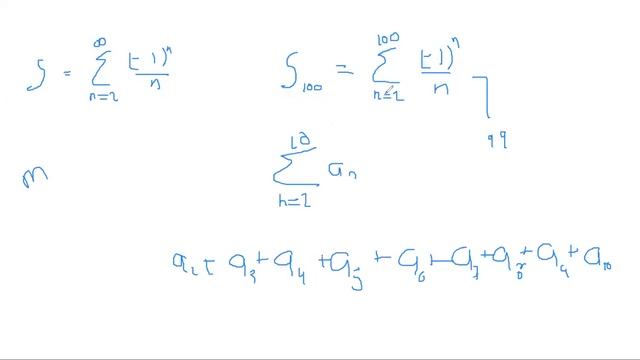 S = ∑_{n=2}^{∞} (-1)^n / n    S_{100} = ∑_{n=2}^{100} (-1)^n / n
99
m    ∑_{n=2}^{10} a_n
a_2 + a_3 + a_4 + a_5 + a_6 + a_7 + a_8 + a_9 + a_{10}